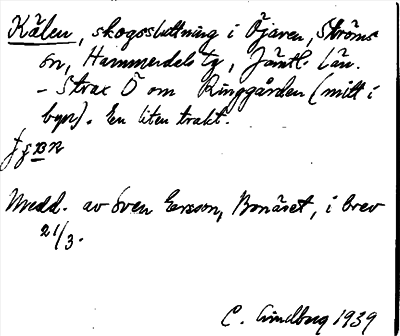 Kälen, skogssluttning i Öjaren, Ströms
sn, Hammerdals tg, Jämtl. län.
– Strax Ö om Ringgården (mitt i
byn). En liten trakt.
Medd. av Sven Ersson, Bonäset, i brev
21/3.
C. Lindberg 1939